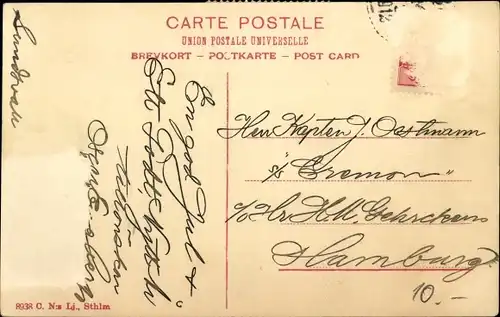 CARTE POSTALE
UNION POSTALE UNIVERSELLE
BREVKORT – POSTKARTE – POST CARD
1912
Sundsvall
En god Jul +
Ett Godt Nytt År
Herr Kapten J. Oestmann
s/s "Cremon"
c/o Hr H.M. Gehrckens
Hamburg
10.–
8938 C. N:s Lj., Sthlm